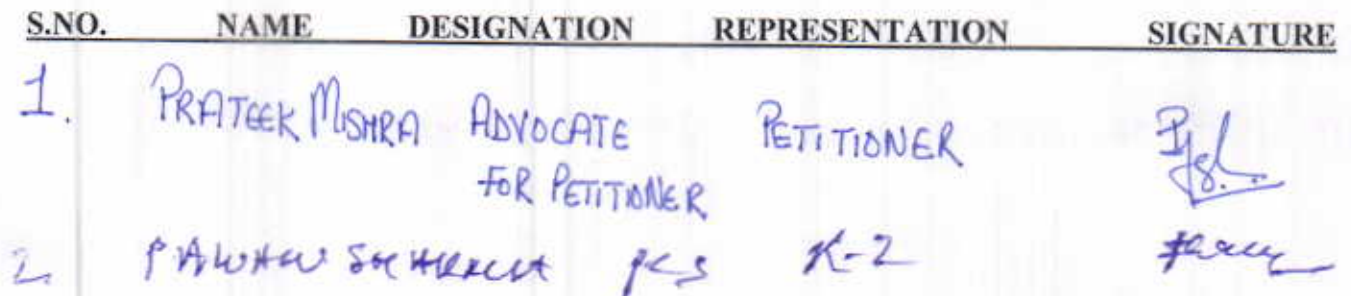 S.NO. NAME DESIGNATION REPRESENTATION SIGNATURE
1. PRATEEK MISHRA ADVOCATE PETITIONER
FOR PETITIONER
2. PAWAN PCS R-2